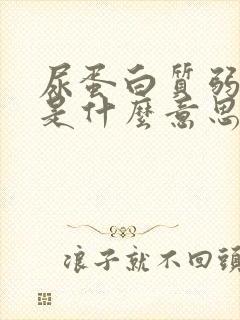 尿蛋白質弱
是什麼意思
浪子就不回頭